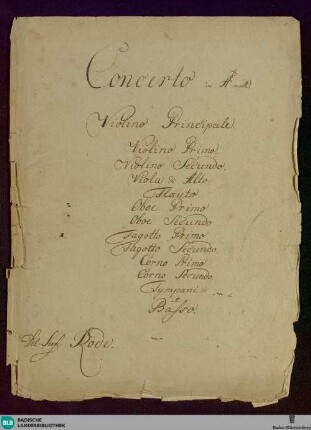 Concerto in A moll
Violino Principale
Violino Primo
Violino Secundo
Viola & Alto
Flauto
Oboe Primo
Oboe Secundo
Fagotto Primo
Fagotto Secundo
Corno Primo
Corno Secundo
Tympani
e
Basso.
Del Sigr Rode.
BLB BADISCHE
LANDESBIBLIOTHEK
Baden-Württemberg